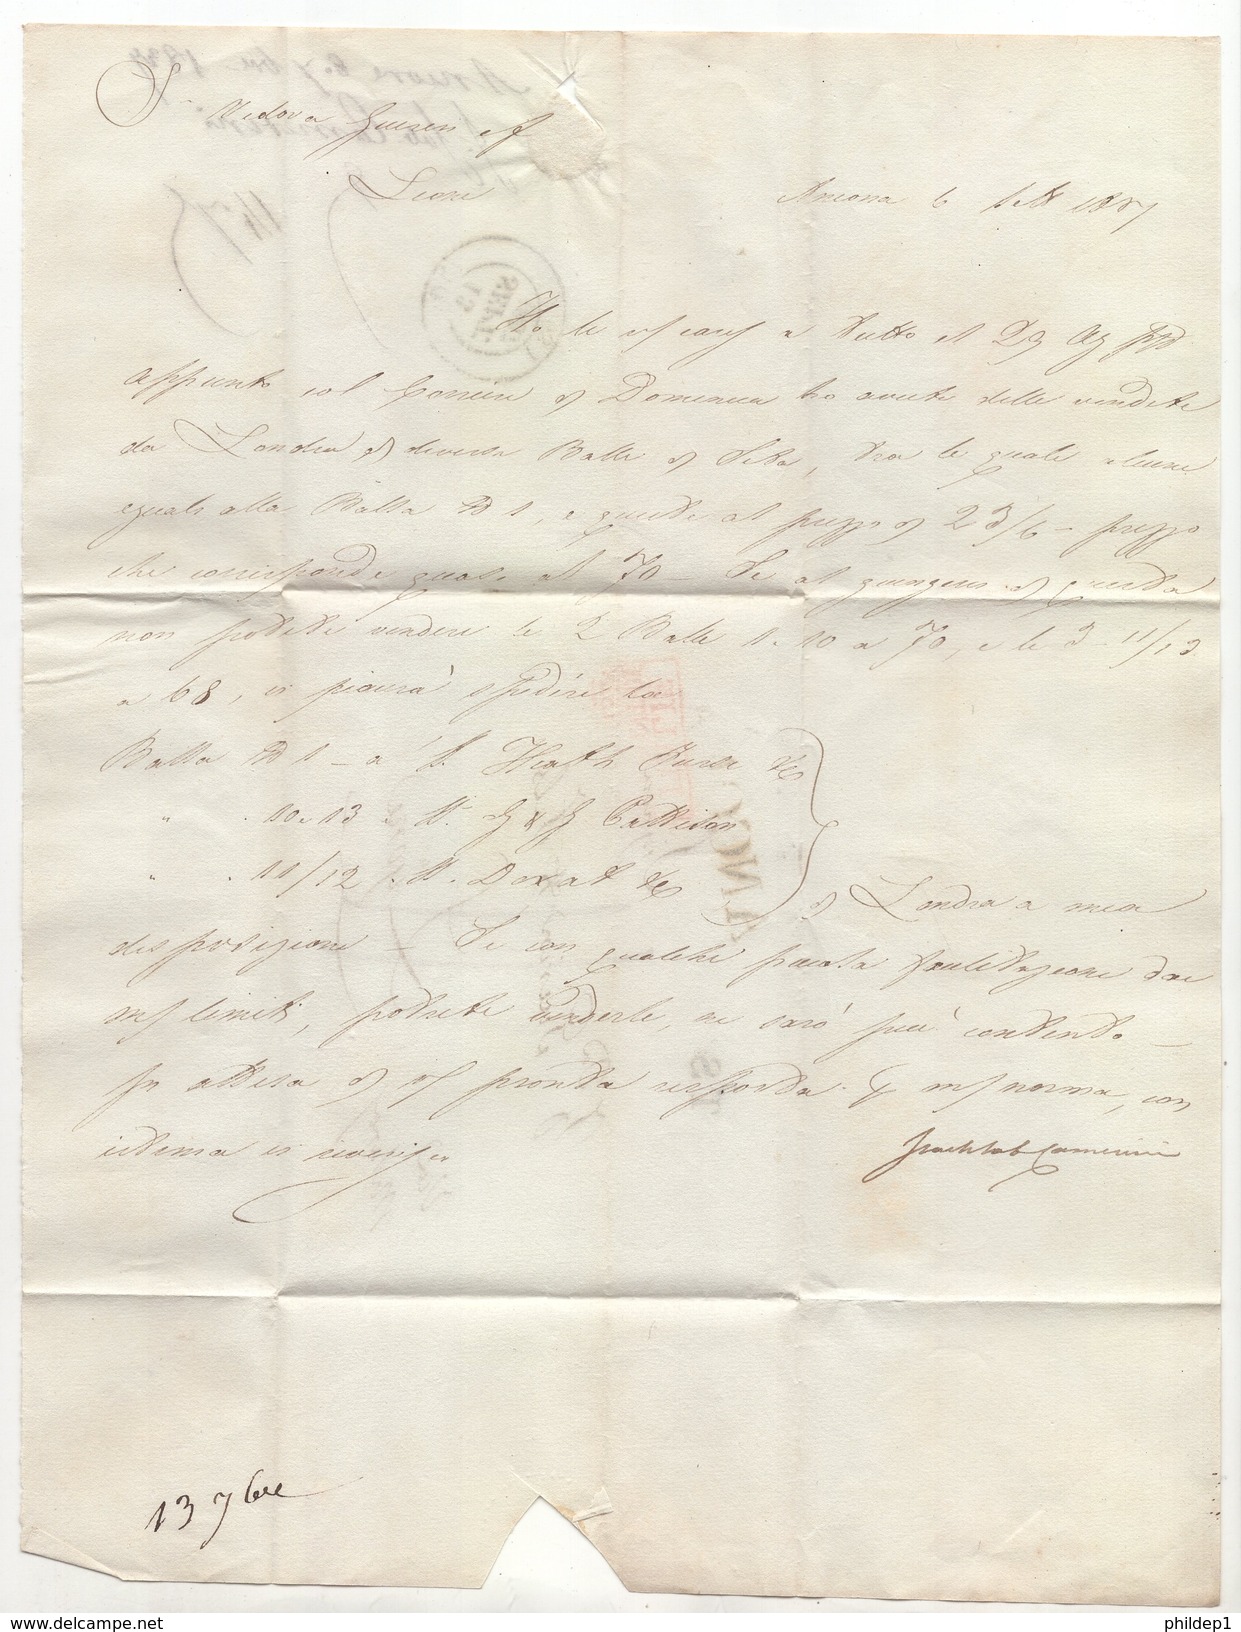 Vedova Guerin e f
Lione
Ancona 6 Sett 1837
Ho le a tutto il 29 Ag ppd
appunto col Corriere di Domenica ho avute delle vendite
da Londra di diverse Balle di Seta, tra le quali alcune
eguali alla Balla No 1, e queste al prezzo di 23/6 - prezzo
che corrisponde quasi al 70 - Se al giungere di questa
non potete vendere le 2 Balle 1. 10 a 70, e le 3 - 11/13
a 68, vi piacerà spedire la
Balla No 1 - a S. Heath Furse & C
" . 10. 13 . M. J & J Pattison
" . 11/12 . M. Doxat & C
di Londra a mia
disposizione - Se con qualche piccola facilitazione dai
limiti, potrete venderle, ne sarò più contento -
In attesa di pronta risposta norma, con
istima vi riverisco
Camerini
13 7bre
ANCONA
SEPT
13
phildep1